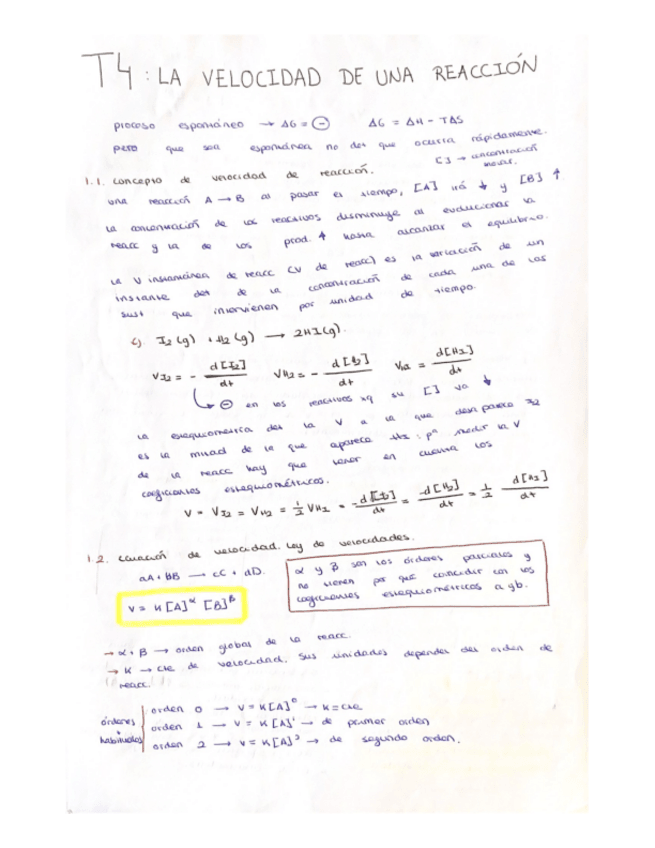 T4: LA VELOCIDAD DE UNA REACCIÓN
proceso espontáneo → ΔG = ⊖ ΔG = ΔH - TΔS
pero que sea espontánea no des que ocurra rápidamente.
[] → concentración molar.
1.1. Concepto de velocidad de reacción.
una reacción A → B al pasar el tiempo, [A] irá ↓ y [B] ↑.
la concentración de los reactivos disminuye al evolucionar la
reacc y la de los prod. ↑ hasta alcanzar el equilibrio.
la V instantánea de reacc (V de reacc) es la variación de un
instante det de la concentración de cada una de las
sust que intervienen por unidad de tiempo.
I2(g) + H2(g) → 2HI(g).
VI2 = - d[I2]/dt VH2 = - d[I2]/dt VHI = d[HI]/dt
↳ ⊖ en los reactivos xq su [] va ↓
la estequiometría des la V a la que desaparece I2
es la mitad de la que aparece HI: pª medir la V
de la reacc hay que tener en cuenta los
coeficientes estequiométricos.
V = VI2 = VH2 = 1/2 VHI = -d[I2]/dt = -d[H2]/dt = 1/2 d[HI]/dt
1.2. Ecuación de velocidad. Ley de velocidades.
aA + bB → cC + dD.
V = K[A]^α [B]^β
α y β son los órdenes parciales y
no tienen por qué coincidir con los
coeficientes estequiométricos a y b.
→ α + β → orden global de la reacc.
→ K → cte de velocidad. Sus unidades depender des orden de
reacc.
órdenes habituales
orden 0 → V = K[A]^0 → K = cte
orden 1 → V = K[A]^1 → de primer orden
orden 2 → V = K[A]^2 → de segundo orden.